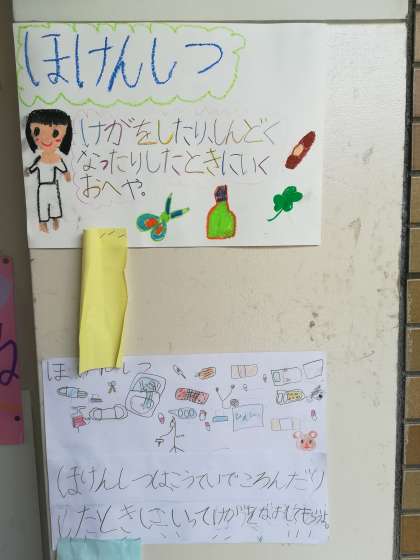 ほけんしつ
けがをしたり、しんどく
なったりしたときにいく
おへや。
ほけんしつ
ほけんしつはこうていでころんだり
したときにいってけがをなおしてもらうよ。